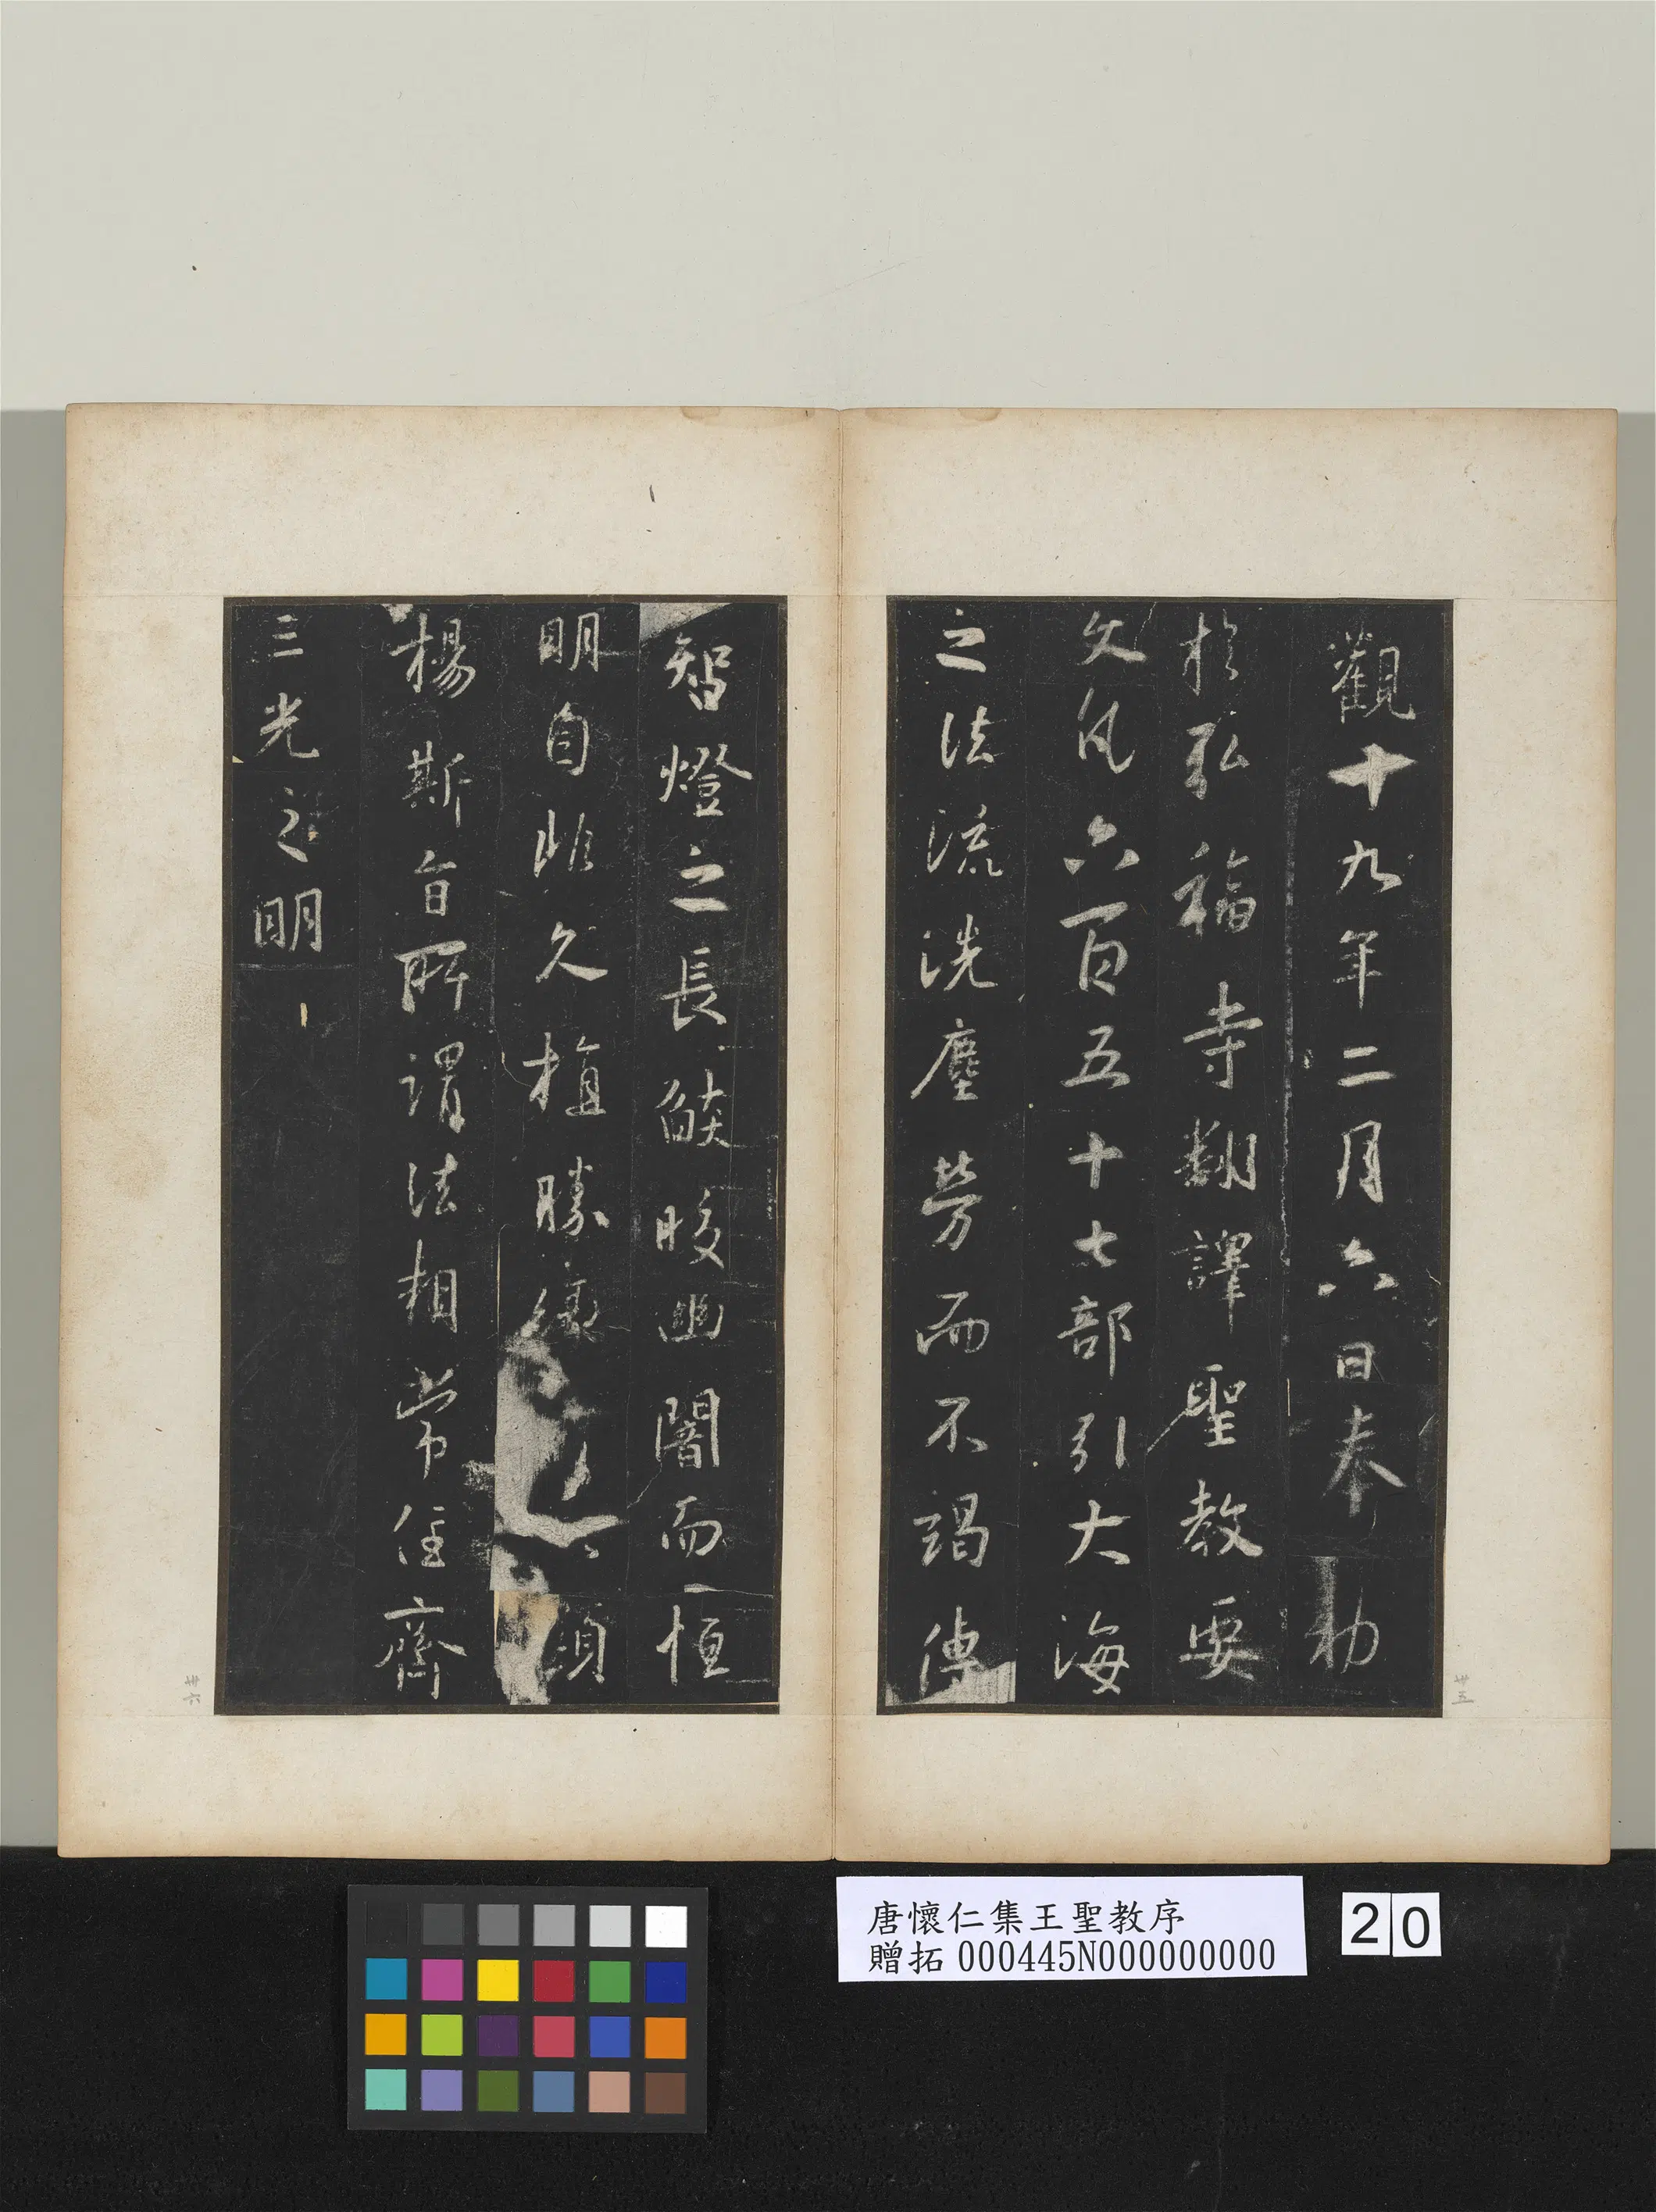 觀十九年二月六日奉勅
於弘福寺翻譯聖教要
文凡六百五十七部引大海
之法流洗塵勞而不竭傳
智燈之長焰皎幽闇而恒
明自非久植勝緣何以顯
揚斯旨所謂法相常住齊
三光之明
卅五
卅六
唐懷仁集王聖教序
贈拓 000445N000000000
20